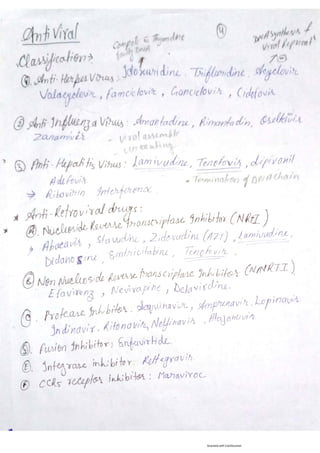 AntiViral
Compet & Thymidine
④
DNA synthesis &
Viral
Classification →
① Anti-Herpes Virus: Idoxuridine, Trifluridine, Acyclovir
Valacyclovir, Famciclovir, Ganciclovir, Cidofovir
② Anti Influenza Virus: Amantadine, Rimantadin, Oseltivir
Zanamivir
- Viral assemble
uncoating
③ Anti-Hepatitis Virus: Lamivudine, Tenofovis,
Adefovir
- Termination of DNA chain
→ Ribavirin Interferon α
* Anti-Retroviral drugs:
Ⓐ Nucleoside Reverse transcriptase Inhibitor (NRTI)
→ Abacavir, Stavudine, Zidovudine (AZT), Lamivudine,
Didanosine, Emtricitabine, Tenofovis.
Ⓑ Non Nucleoside Reverse transcriptase Inhibitors (NNRTI)
Efavirenz, Nevirapine, Delavirdine.
Ⓒ. Protease Inhibitor: Saquinavir, Amprenavir, Lopinavir
Indinavir, Ritonavir, Nelfinavir, Atazanavir
Ⓓ. Fusion Inhibitor: Enfuvirtide
Ⓔ. Integrase inhibitor: Raltegravir
Ⓕ CCR5 receptor inhibitor: Maraviroc
Scanned with CamScanner